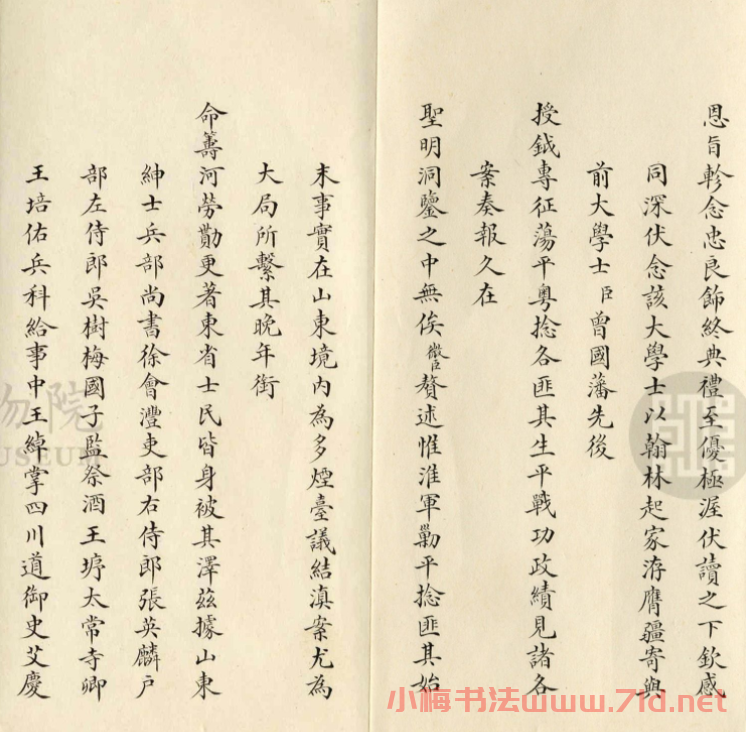 恩旨軫念忠良飾終典禮至優極渥伏讀之下欽感
同深伏念該大學士以翰林起家洊膺疆寄與
前大學士臣曾國藩先後
授鉞專征蕩平粵捻各匪其生平戰功政績見諸各
案奏報久在
聖明洞鑒之中無俟微臣贅述惟淮軍勦平捻匪其始
末事實在山東境內為多煙臺議結滇案尤為
大局所繫其晚年銜
命籌河勞勩更著東省士民皆身被其澤茲據山東
紳士兵部尚書徐會灃吏部右侍郎張英麟戶
部左侍郎吳樹梅國子監祭酒王垿太常寺卿
王培佑兵科給事中王綽掌四川道御史艾慶
物院
USEUM
小梅书法www.71d.net